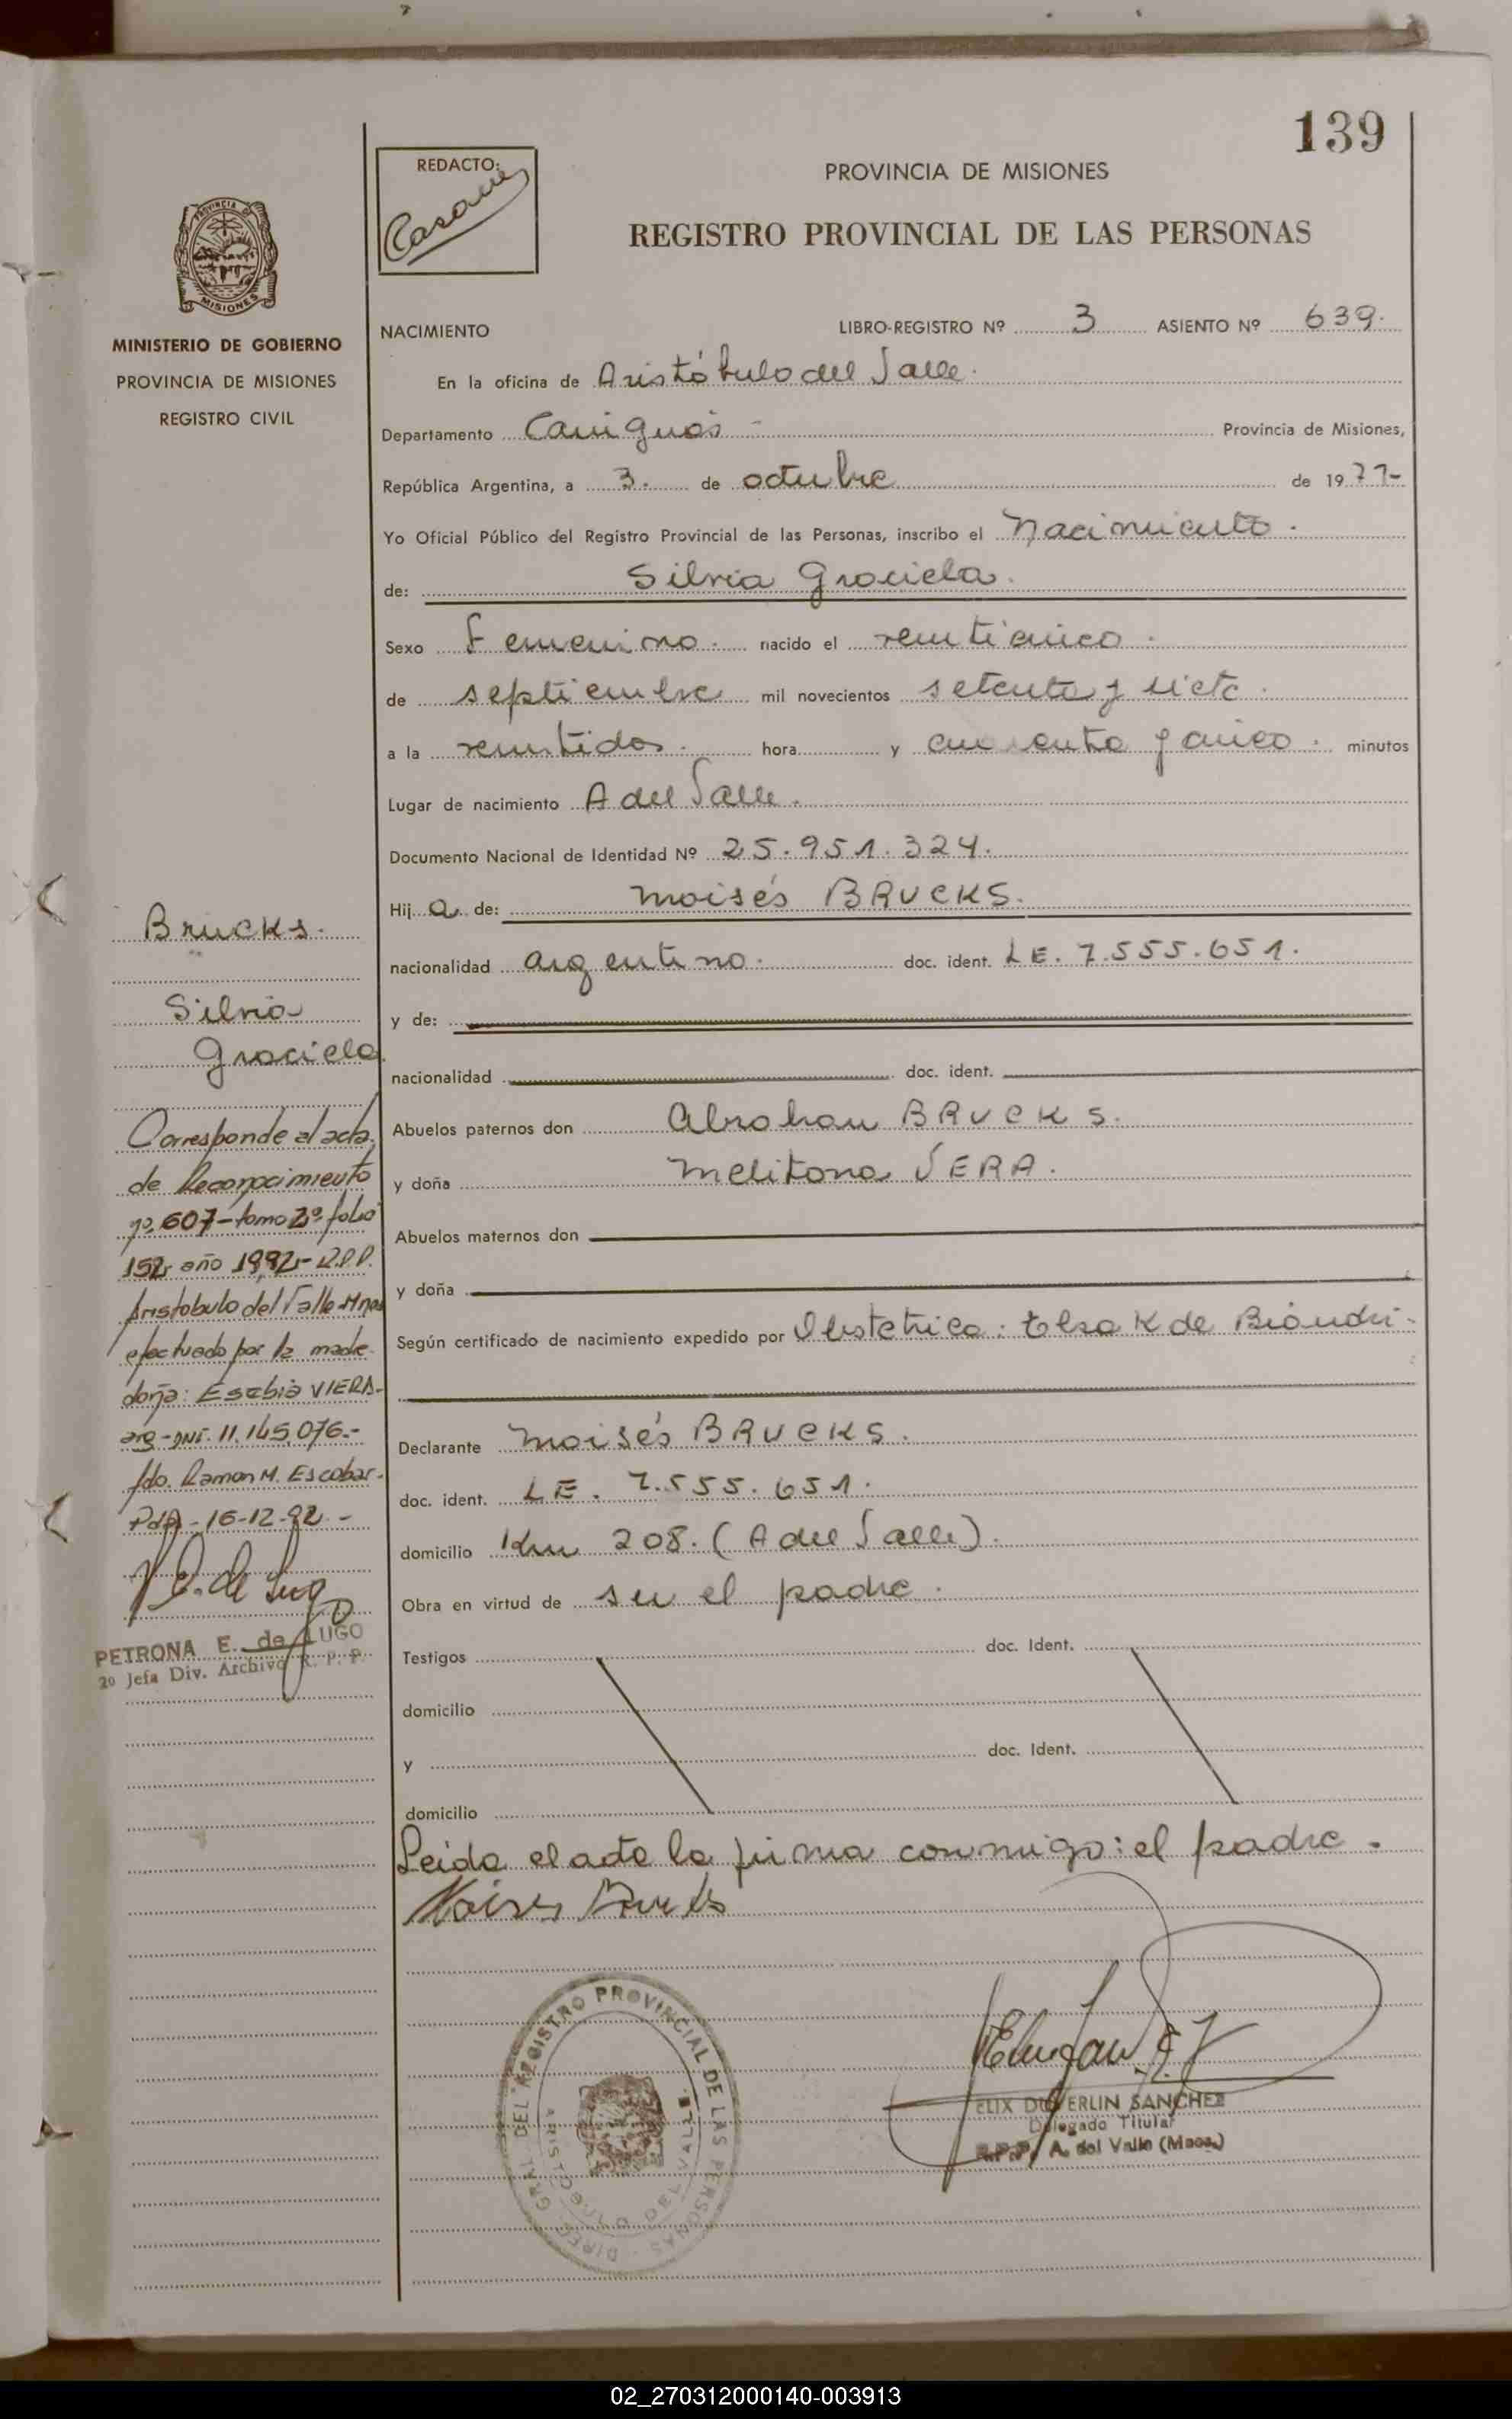 139
REDACTO:
PROVINCIA DE MISIONES
REGISTRO PROVINCIAL DE LAS PERSONAS
PROVINCIA DE
MISIONES
MINISTERIO DE GOBIERNO
PROVINCIA DE MISIONES
REGISTRO CIVIL
NACIMIENTO LIBRO-REGISTRO Nº 3 ASIENTO Nº 639.
En la oficina de Aristóbulo del Valle.
Departamento Cainguás - Provincia de Misiones,
República Argentina, a 3. de octubre de 1977-
Yo Oficial Público del Registro Provincial de las Personas, inscribo el Nacimiento.
de: Silvia Graciela.
Sexo Femenino. nacido el veinticinco.
de septiembre mil novecientos setenta y siete.
a la veintidos. hora y cuarenta y cinco. minutos
Lugar de nacimiento A del Valle.
Documento Nacional de Identidad Nº 25.951.324.
Hij a de: Moisés BRUCKS.
nacionalidad argentino. doc. ident. LE. 7.555.651.
y de:
nacionalidad doc. ident.
Abuelos paternos don Abrahan BRUCKS.
y doña Melitona VERA.
Abuelos maternos don
y doña
Según certificado de nacimiento expedido por Obstetrica: Elsa K de Biondri-
Declarante Moisés BRUCKS.
doc. ident. LE. 7.555.651.
domicilio Km 208. (A del Valle).
Obra en virtud de ser el padre.
Testigos doc. Ident.
domicilio
y doc. Ident.
domicilio
Leida el acta la firma conmigo: el padre.
Moises Brucks
Brucks.
Silvia
Graciela
Corresponde al acta
de Reconocimiento
nº 607-tomo 2º folio
152 año 1992-R.P.P.
Aristobulo del Valle-Mnes
efectuado por la madre
doña: Esebia VIERA-
arg-DNI. 11.145.076.-
fdo. Ramon M. Escobar-
Pdas-16-12-92.-
PETRONA E. de LUGO
2º Jefa Div. Archivo R. P. P.
DIREC. GRAL. DEL REGISTRO PROVINCIAL DE LAS PERSONAS
ARISTOBULO DEL VALLE
ELIX DUVERLIN SANCHEZ
Delegado Titular
R.P.P. A. del Valle (Mnes.)
02_270312000140-003913